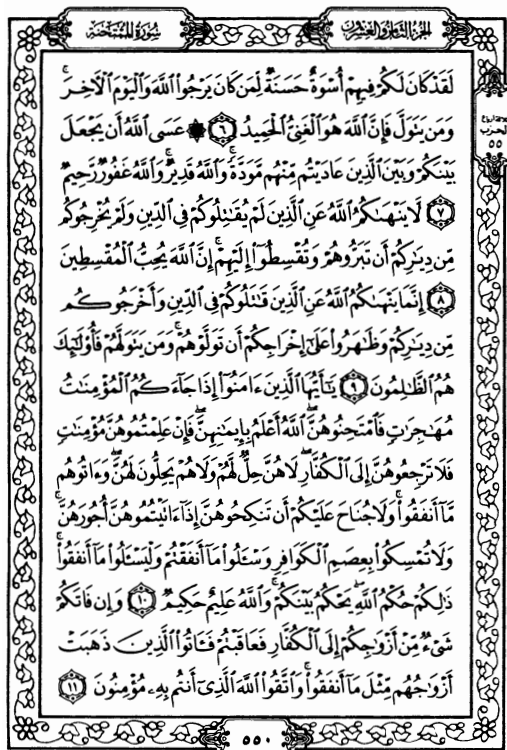 سُورَةُ المُمْتَحنَةِ
الجُزءُ الثَّامِنُ وَالعِشْرُونَ
لَقَدْ كَانَ لَكُمْ فِيهِمْ أُسْوَةٌ حَسَنَةٌ لِّمَن كَانَ يَرْجُوا۟ ٱللَّهَ وَٱلْيَوْمَ ٱلْـَٔاخِرَ ۚ
وَمَن يَتَوَلَّ فَإِنَّ ٱللَّهَ هُوَ ٱلْغَنِىُّ ٱلْحَمِيدُ ٦ ۞ عَسَى ٱللَّهُ أَن يَجْعَلَ
بَيْنَكُمْ وَبَيْنَ ٱلَّذِينَ عَادَيْتُم مِّنْهُم مَّوَدَّةً ۚ وَٱللَّهُ قَدِيرٌ ۚ وَٱللَّهُ غَفُورٌ رَّحِيمٌ
٧ لَّا يَنْهَىٰكُمُ ٱللَّهُ عَنِ ٱلَّذِينَ لَمْ يُقَـٰتِلُوكُمْ فِى ٱلدِّينِ وَلَمْ يُخْرِجُوكُم
مِّن دِيَـٰرِكُمْ أَن تَبَرُّوهُمْ وَتُقْسِطُوٓا۟ إِلَيْهِمْ ۚ إِنَّ ٱللَّهَ يُحِبُّ ٱلْمُقْسِطِينَ
٨ إِنَّمَا يَنْهَىٰكُمُ ٱللَّهُ عَنِ ٱلَّذِينَ قَـٰتَلُوكُمْ فِى ٱلدِّينِ وَأَخْرَجُوكُم
مِّن دِيَـٰرِكُمْ وَظَـٰهَرُوا۟ عَلَىٰٓ إِخْرَاجِكُمْ أَن تَوَلَّوْهُمْ ۚ وَمَن يَتَوَلَّهُمْ فَأُو۟لَـٰٓئِكَ
هُمُ ٱلظَّـٰلِمُونَ ٩ يَـٰٓأَيُّهَا ٱلَّذِينَ ءَامَنُوٓا۟ إِذَا جَآءَكُمُ ٱلْمُؤْمِنَـٰتُ
مُهَـٰجِرَٰتٍ فَٱمْتَحِنُوهُنَّ ۖ ٱللَّهُ أَعْلَمُ بِإِيمَـٰنِهِنَّ ۖ فَإِنْ عَلِمْتُمُوهُنَّ مُؤْمِنَـٰتٍ
فَلَا تَرْجِعُوهُنَّ إِلَى ٱلْكُفَّارِ ۖ لَا هُنَّ حِلٌّ لَّهُمْ وَلَا هُمْ يَحِلُّونَ لَهُنَّ ۖ وَءَاتُوهُم
مَّآ أَنفَقُوا۟ ۚ وَلَا جُنَاحَ عَلَيْكُمْ أَن تَنكِحُوهُنَّ إِذَآ ءَاتَيْتُمُوهُنَّ أُجُورَهُنَّ ۚ
وَلَا تُمْسِكُوا۟ بِعِصَمِ ٱلْكَوَافِرِ وَسْـَٔلُوا۟ مَآ أَنفَقْتُمْ وَلْيَسْـَٔلُوا۟ مَآ أَنفَقُوا۟ ۚ
ذَٰلِكُمْ حُكْمُ ٱللَّهِ ۖ يَحْكُمُ بَيْنَكُمْ ۚ وَٱللَّهُ عَلِيمٌ حَكِيمٌ ١٠ وَإِن فَاتَكُمْ
شَىْءٌ مِّنْ أَزْوَٰجِكُمْ إِلَى ٱلْكُفَّارِ فَعَاقَبْتُمْ فَـَٔاتُوا۟ ٱلَّذِينَ ذَهَبَتْ
أَزْوَٰجُهُم مِّثْلَ مَآ أَنفَقُوا۟ ۚ وَٱتَّقُوا۟ ٱللَّهَ ٱلَّذِىٓ أَنتُم بِهِۦ مُؤْمِنُونَ ١١
الحزب
٥٥
٥٥٠